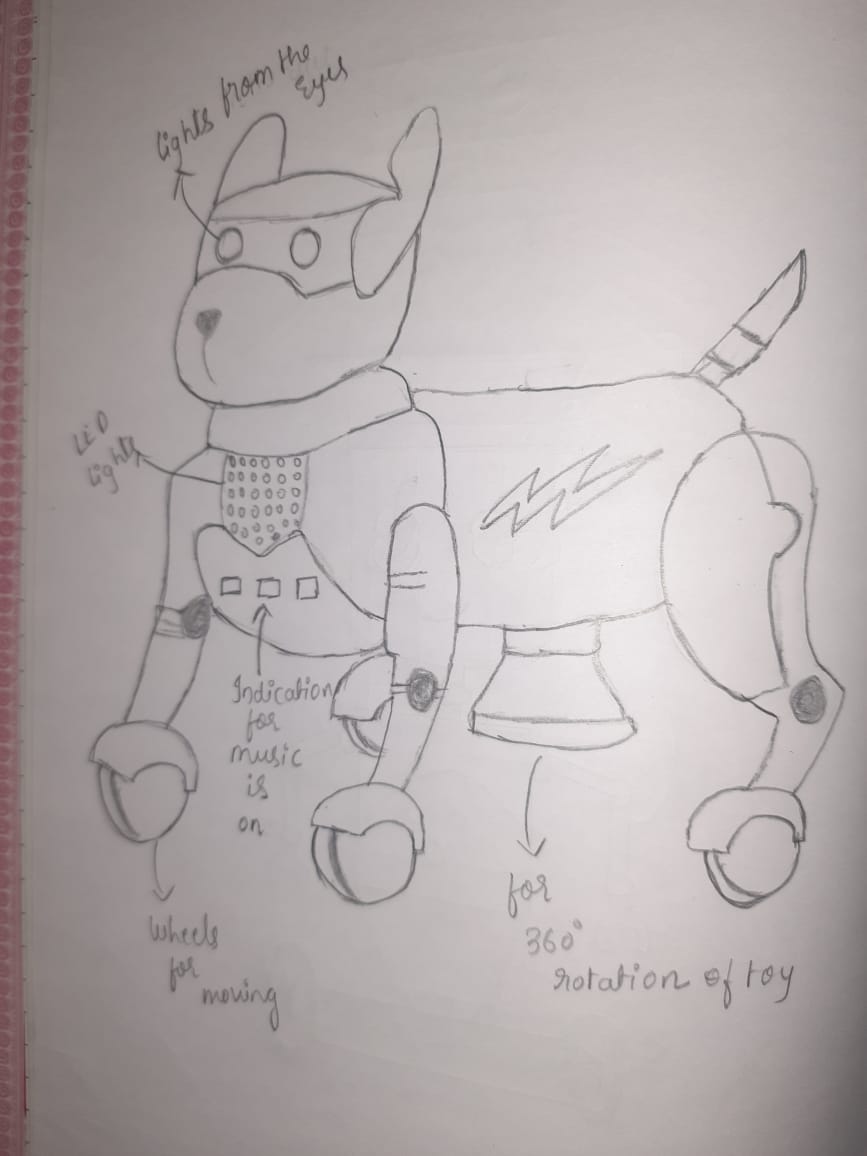 Lights from the
Eyes
LED
Lights
Indication
for
music
is
on
Wheels
for
moving
for
360°
rotation of toy